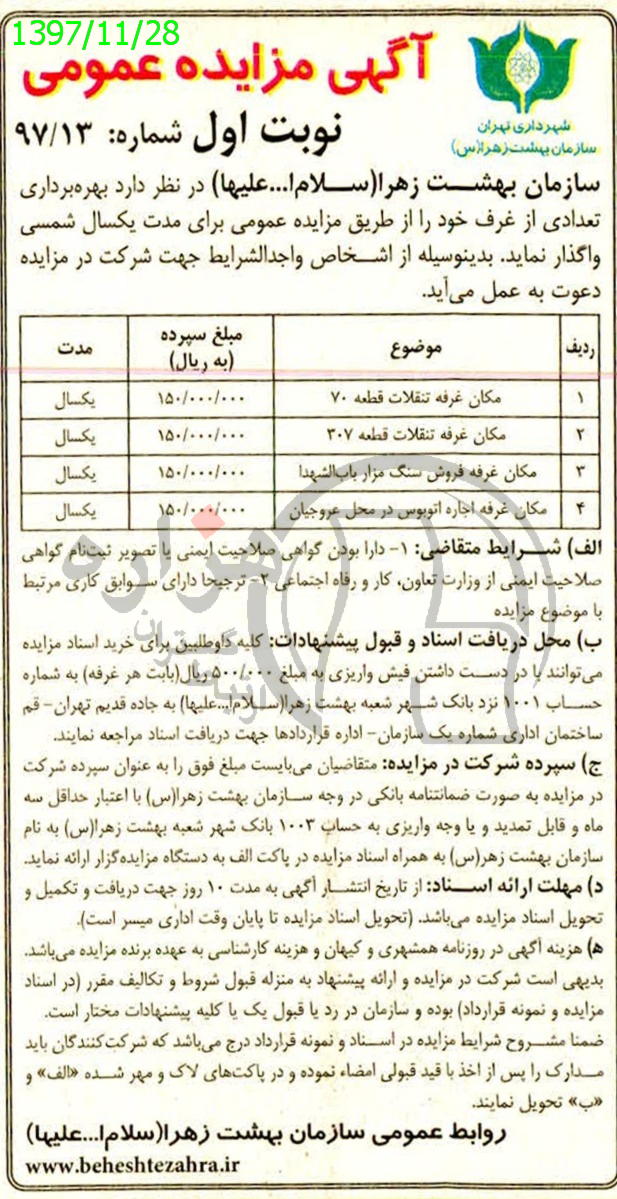 1397/11/28
آگهی مزایده عمومی
شهرداری تهران
سازمان بهشت زهرا(س)
نوبت اول شماره: ۹۷/۱۳
سازمان بهشت زهرا(سلام‌ا...علیها) در نظر دارد بهره‌برداری
تعدادی از غرف خود را از طریق مزایده عمومی برای مدت یکسال شمسی
واگذار نماید. بدینوسیله از اشخاص واجدالشرایط جهت شرکت در مزایده
دعوت به عمل می‌آید.
ردیف موضوع مبلغ سپرده (به ریال) مدت
۱ مکان غرفه تنقلات قطعه ۷۰ ۱۵۰/۰۰۰/۰۰۰ یکسال
۲ مکان غرفه تنقلات قطعه ۳۰۷ ۱۵۰/۰۰۰/۰۰۰ یکسال
۳ مکان غرفه فروش سنگ مزار باب‌الشهدا ۱۵۰/۰۰۰/۰۰۰ یکسال
۴ مکان غرفه اجاره اتوبوس در محل عروجیان ۱۵۰/۰۰۰/۰۰۰ یکسال
الف) شرایط متقاضی: ۱- دارا بودن گواهی صلاحیت ایمنی یا تصویر ثبت‌نام گواهی
صلاحیت ایمنی از وزارت تعاون، کار و رفاه اجتماعی ۲- ترجیحا دارای سوابق کاری مرتبط
با موضوع مزایده
ب) محل دریافت اسناد و قبول پیشنهادات: کلیه داوطلبین برای خرید اسناد مزایده
می‌توانند با در دست داشتن فیش واریزی به مبلغ ۵۰۰/۰۰۰ ریال(بابت هر غرفه) به شماره
حساب ۱۰۰۱ نزد بانک شهر شعبه بهشت زهرا(سلام‌ا...علیها) به جاده قدیم تهران- قم
ساختمان اداری شماره یک سازمان- اداره قراردادها جهت دریافت اسناد مراجعه نمایند.
ج) سپرده شرکت در مزایده: متقاضیان می‌بایست مبلغ فوق را به عنوان سپرده شرکت
در مزایده به صورت ضمانتنامه بانکی در وجه سازمان بهشت زهرا(س) با اعتبار حداقل سه
ماه و قابل تمدید و یا وجه واریزی به حساب ۱۰۰۳ بانک شهر شعبه بهشت زهرا(س) به نام
سازمان بهشت زهر(س) به همراه اسناد مزایده در پاکت الف به دستگاه مزایده‌گزار ارائه نماید.
د) مهلت ارائه اسناد: از تاریخ انتشار آگهی به مدت ۱۰ روز جهت دریافت و تکمیل و
تحویل اسناد مزایده می‌باشد. (تحویل اسناد مزایده تا پایان وقت اداری میسر است).
ه) هزینه آگهی در روزنامه همشهری و کیهان و هزینه کارشناسی به عهده برنده مزایده می‌باشد.
بدیهی است شرکت در مزایده و ارائه پیشنهاد به منزله قبول شروط و تکالیف مقرر (در اسناد
مزایده و نمونه قرارداد) بوده و سازمان در رد یا قبول یک یا کلیه پیشنهادات مختار است.
ضمنا مشروح شرایط مزایده در اسناد و نمونه قرارداد درج می‌باشد که شرکت‌کنندگان باید
مدارک را پس از اخذ با قید قبولی امضاء نموده و در پاکت‌های لاک و مهر شده «الف» و
«ب» تحویل نمایند.
روابط عمومی سازمان بهشت زهرا(سلام‌ا...علیها)
www.beheshtezahra.ir
هزاره